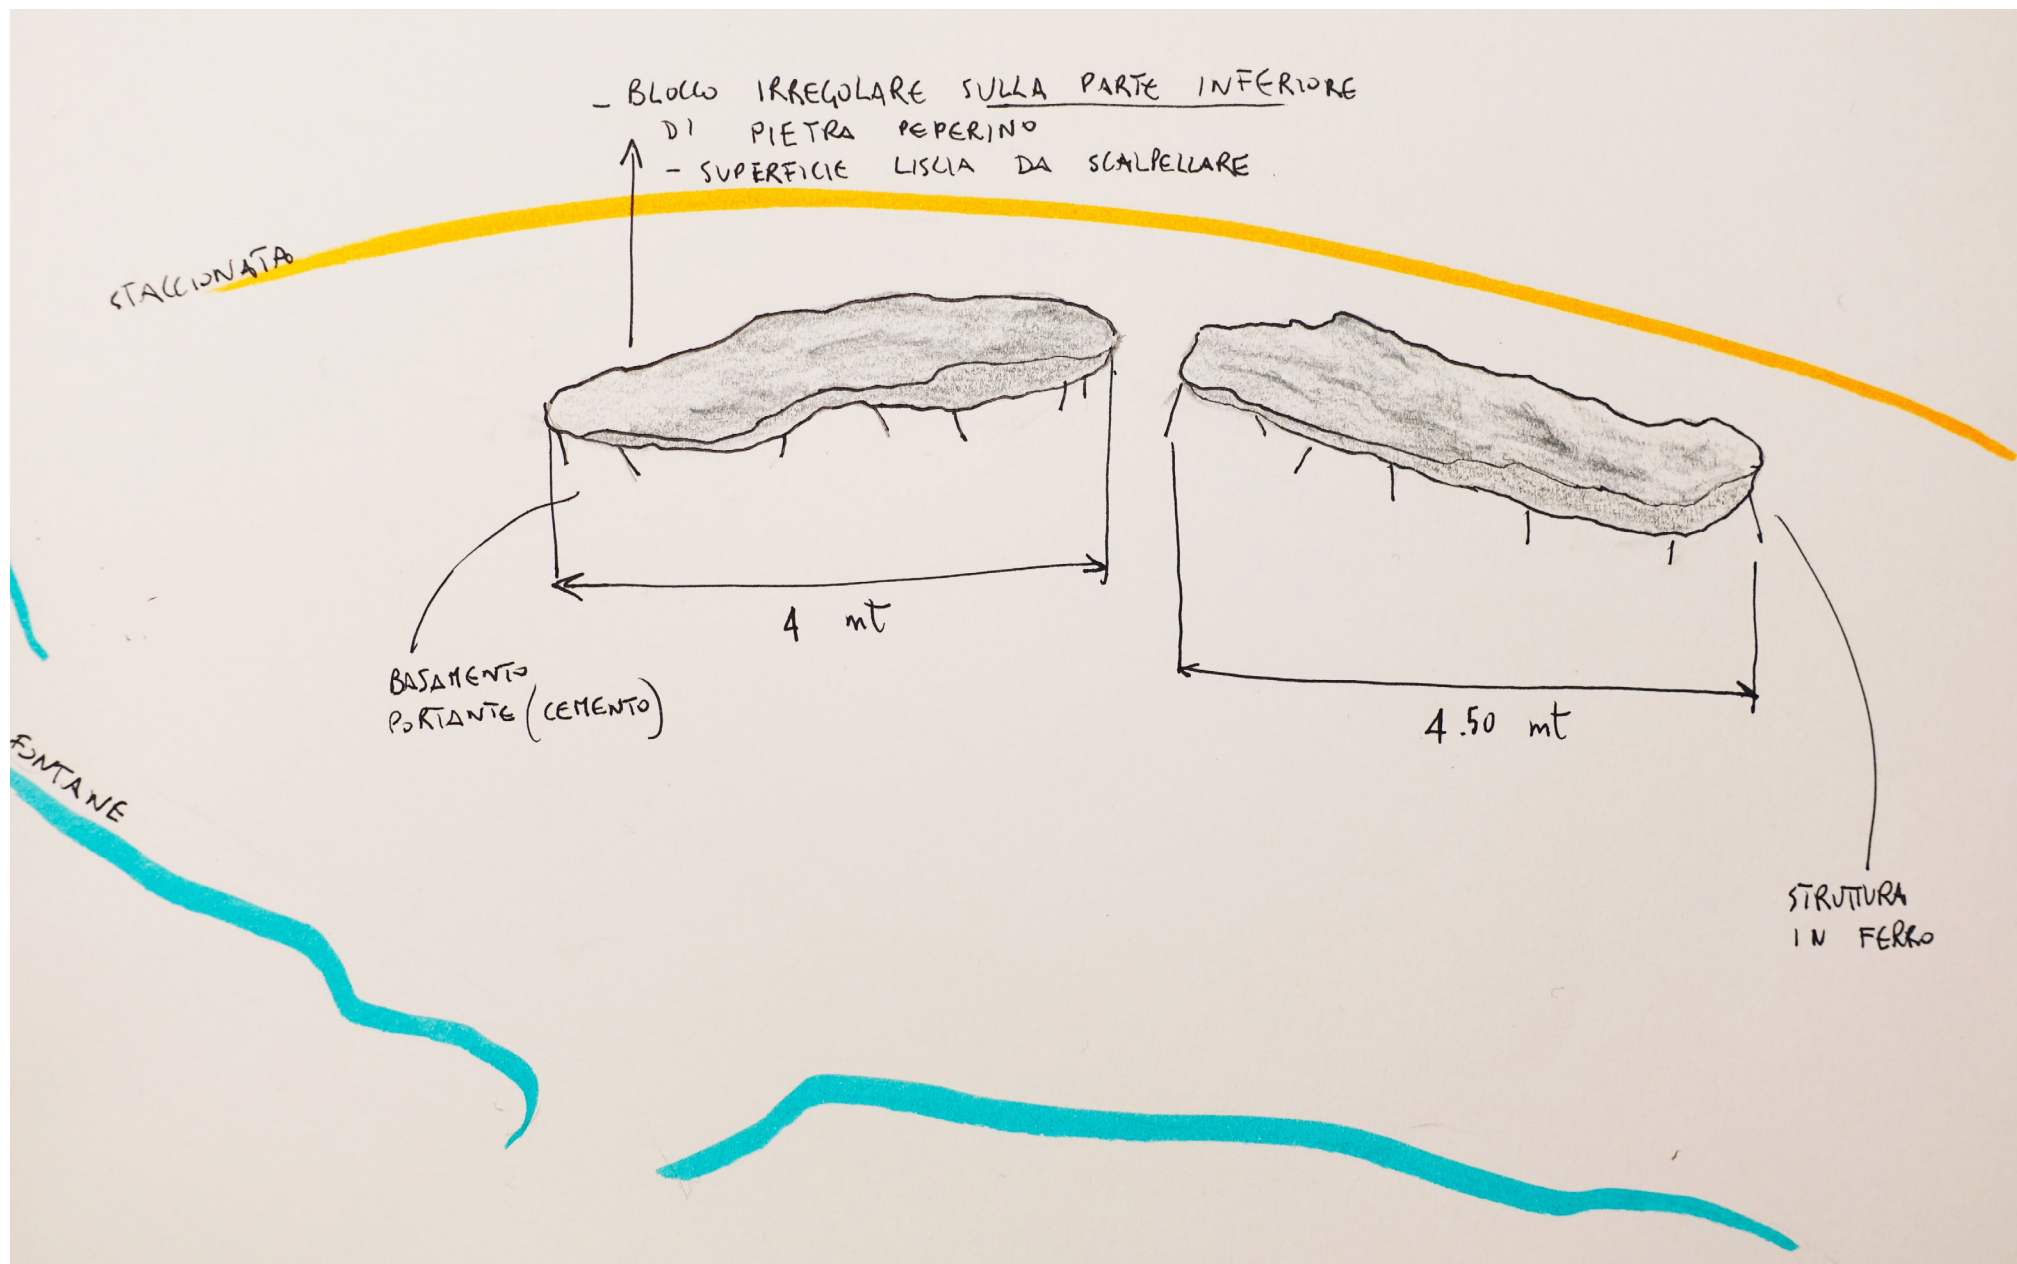 - BLOCCO IRREGOLARE SULLA PARTE INFERIORE
DI PIETRA PEPERINO
- SUPERFICIE LISCIA DA SCALPELLARE
STACCIONATA
4 mt
BASAMENTO
PORTANTE (CEMENTO)
4.50 mt
FONTANE
STRUTTURA
IN FERRO